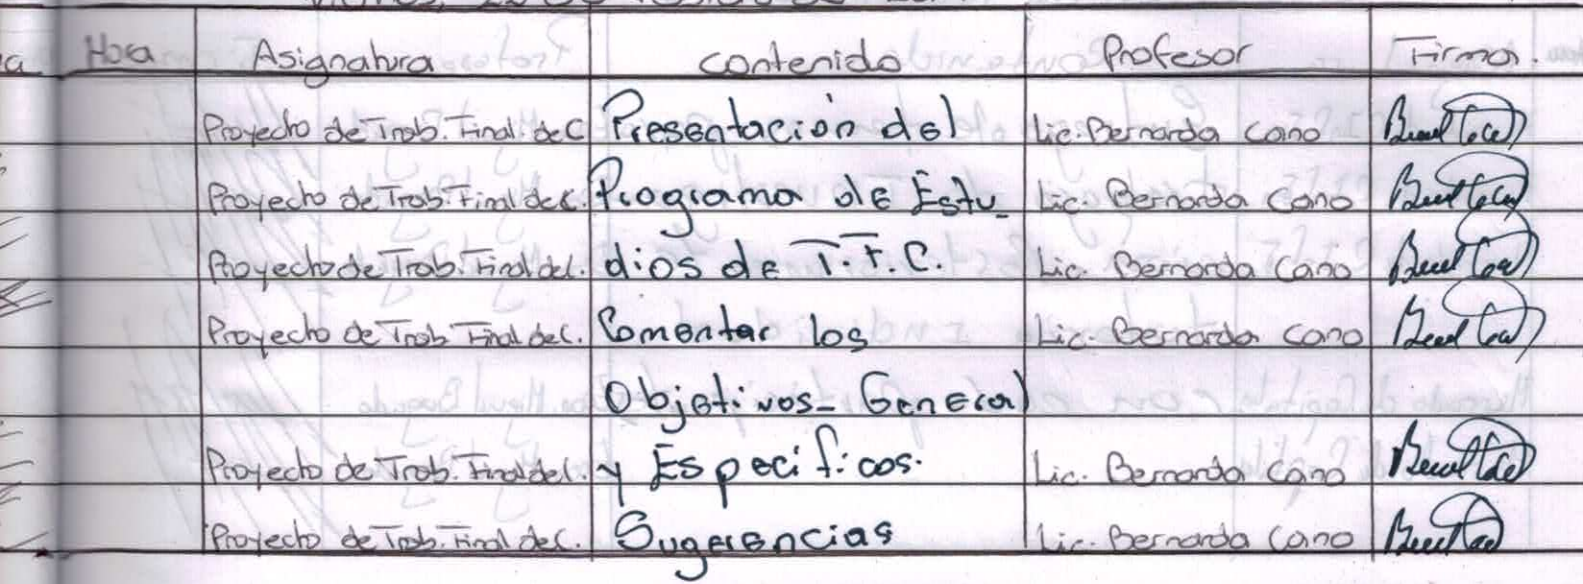 Hora Asignatura Contenido Profesor Firma.
Proyecto de Trab. Final. de C Presentación del Lic. Bernarda Cano
Proyecto de Trab. Final de C. Programa de Estu_ Lic. Bernarda Cano
Proyecto de Trab. Final de C. dios de T.F.C. Lic. Bernarda Cano
Proyecto de Trab. Final de C. Comentar los Lic. Bernarda Cano
Objetivos_ General
Proyecto de Trab. Final de C. y Especificos. Lic. Bernarda Cano
Proyecto de Trab. Final de C. Sugerencias Lic. Bernarda Cano